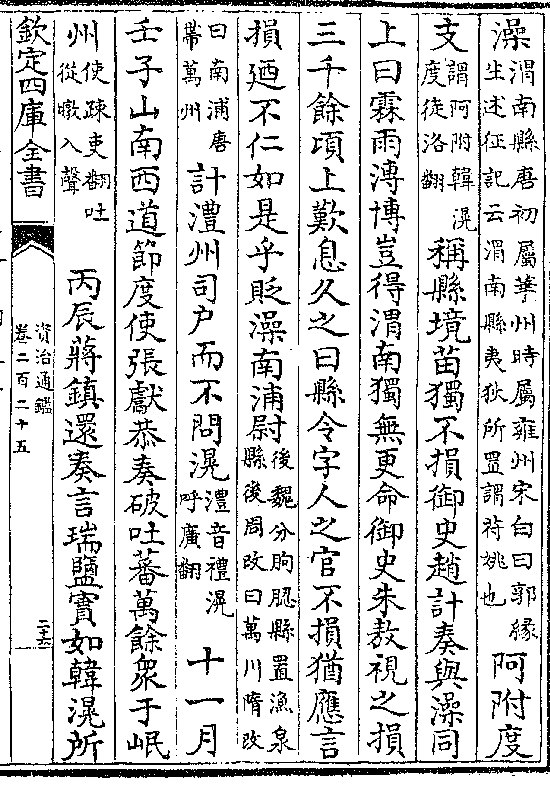 澡渭南縣唐初屬華州時屬雍州宋白曰郭緣生述征記云渭南縣夷狄所置謂苻姚也阿附度
支謂阿附韓滉度徒洛翻稱縣境苗獨不損御史趙計奏與澡同
上曰霖雨溥博豈得渭南獨無更命御史朱敖視之損
三千餘頃上歎息久之曰縣令字人之官不損猶應言
損廼不仁如是乎貶澡南浦尉後魏分朐䏰縣置漁泉縣後周改曰萬川隋改
曰南浦唐帶萬州計澧州司戶而不問滉澧音禮滉呼廣翻十一月
壬子山南西道節度使張獻恭奏破吐蕃萬餘衆于岷
州使疎吏翻吐從暾入聲丙辰蔣鎮還奏言瑞鹽實如韓滉所
欽定四庫全書
資治通鑑
卷二百二十五